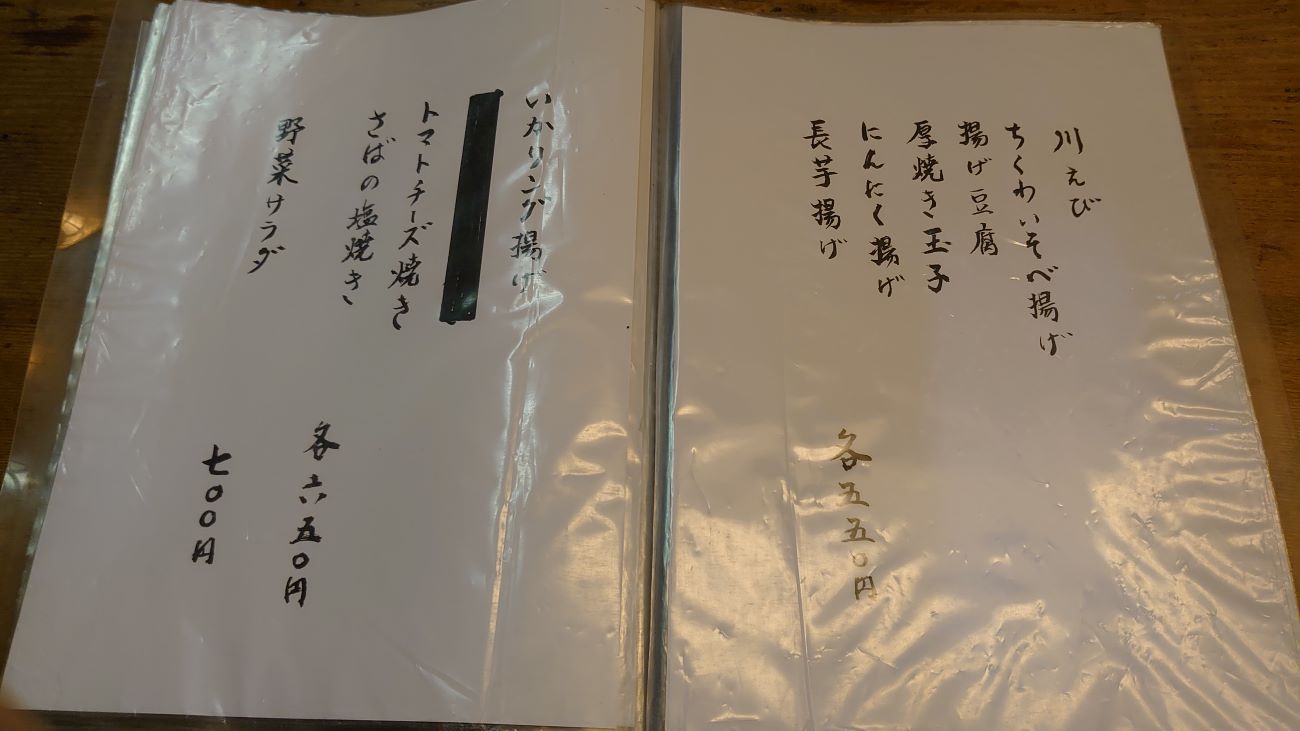 川えび
ちくわいそべ揚げ
揚げ豆腐
厚焼き玉子
にんにく揚げ
長芋揚げ
各五五〇円
いかリング揚げ
トマトチーズ焼き
さばの塩焼き
各六五〇円
野菜サラダ
七〇〇円